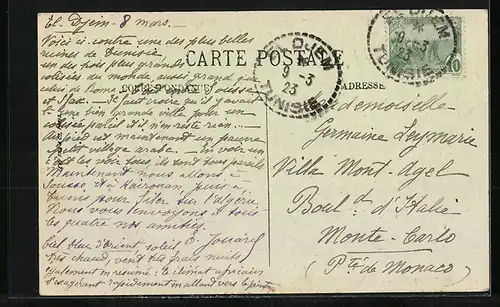 El Djem - 8 mars.-
Voici ci-contre une des plus belles
ruines de Tunisie
un des plus grands
colisées du monde aussi grand que
celui de Rome
et Sfax. - Il faut croire qu'il y avait
là une bien grande ville pour un
colisée pareil et il n'en reste rien...
Au pied est maintenant un pauvre
petit village arabe. - En voir un
c'est les voir tous ils sont tous pareils
Maintenant nous allons à
Sousse et à Kairouan puis à
Tunis pour filer sur l'Algérie.
Nous vous envoyons à tous
les quatre nos amitiés.
Ciel bleu d'orient soleil
très chaud, vent très frais nuits
également en résumé : le climat africain
s'exagérant rapidement en allant vers le
CARTE POSTALE
CORRESPONDANCE
ADRESSE
EL DJEM
9 -3
23
TUNISIE
EL DJEM
9 -3
23
TUNISIE
10
Mademoiselle
Germaine Leymarie
Villa Mont-Agel
Boul.d d'Italie
Monte-Carlo
(P.té de Monaco)